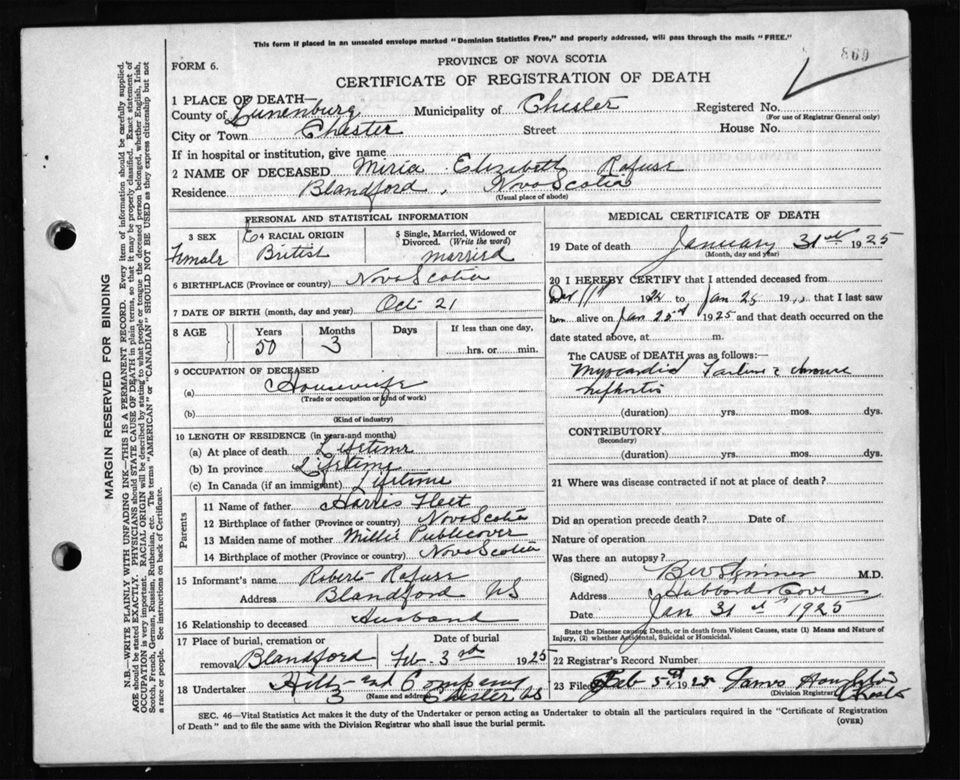 This form if placed in an unsealed envelope marked "Dominion Statistics Free," and properly addressed, will pass through the mails "FREE."
869
FORM 6.
PROVINCE OF NOVA SCOTIA
CERTIFICATE OF REGISTRATION OF DEATH
1 PLACE OF DEATH—
County of Lunenburg Municipality of Chester Registered No.
(For use of Registrar General only)
City or Town Chester Street House No.
If in hospital or institution, give name
2 NAME OF DECEASED Miria Elizibeth Rafuse
Residence Blandford, Nova Scotia
(Usual place of abode)
PERSONAL AND STATISTICAL INFORMATION
3 SEX
Female
4 RACIAL ORIGIN
British
5 Single, Married, Widowed or Divorced. (Write the word)
married
6 BIRTHPLACE (Province or country) Nova Scotia
7 DATE OF BIRTH (month, day and year) Oct 21
8 AGE Years Months Days If less than one day,
50 3 hrs. or min.
9 OCCUPATION OF DECEASED
(a) Housewife
(Trade or occupation or kind of work)
(b)
(Kind of industry)
10 LENGTH OF RESIDENCE (in years and months)
(a) At place of death Lifetime
(b) In province Lifetime
(c) In Canada (if an immigrant) Lifetime
Parents
11 Name of father Harris Fleet
12 Birthplace of father (Province or country) Nova Scotia
13 Maiden name of mother Millie Publicover
14 Birthplace of mother (Province or country) Nova Scotia
15 Informant's name Robert Rafuse
Address Blandford NS
16 Relationship to deceased Husband
17 Place of burial, cremation or removal Blandford
Date of burial
Feb 3rd 1925
18 Undertaker Company
(Name and address) Chester NS
MEDICAL CERTIFICATE OF DEATH
19 Date of death January 31st 1925
(Month, day and year)
20 I HEREBY CERTIFY that I attended deceased from
Dec 11th 192 to Jan 25 19 that I last saw
her alive on Jan 25 1925 and that death occurred on the
date stated above, at m.
The CAUSE OF DEATH was as follows:
Myocardic Failure
nephritis
(duration) yrs. mos. dys.
CONTRIBUTORY
(Secondary)
(duration) yrs. mos. dys.
21 Where was disease contracted if not at place of death?
Did an operation precede death? Date of
Nature of operation
Was there an autopsy?
(Signed) M.D.
Address Hubbard Cove
Date Jan 31st 1925
State the Disease causing Death, or in death from Violent Causes, state (1) Means and Nature of Injury, (2) whether Accidental, Suicidal or Homicidal.
22 Registrar's Record Number
23 Filed Feb 5th 1925 James
(Division Registrar) Chester
SEC. 46—Vital Statistics Act makes it the duty of the Undertaker or person acting as Undertaker to obtain all the particulars required in the "Certificate of Registration
of Death" and to file the same with the Division Registrar who shall issue the burial permit. (OVER)
MARGIN RESERVED FOR BINDING
N.B.—WRITE PLAINLY WITH UNFADING INK—THIS IS A PERMANENT RECORD. Every item of information should be carefully supplied.
AGE should be stated EXACTLY. PHYSICIANS should STATE CAUSE OF DEATH in plain terms, so that it may be properly classified. Exact statement of
OCCUPATION is very important. RACIAL ORIGIN will be described by stating to what people or tongue the deceased person belonged, whether English, Irish,
Scotch, French, German, Russian, Ruthenian, etc. The terms "AMERICAN" or "CANADIAN" SHOULD NOT BE USED as they express citizenship but not
a race or people. See instructions on back of Certificate.